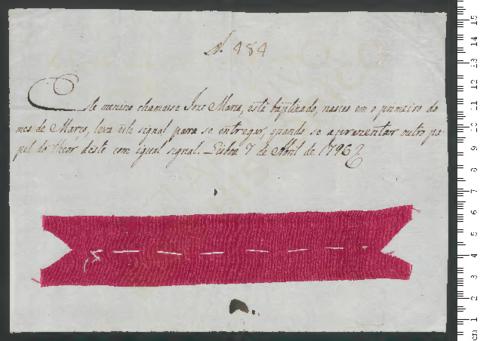 N. 484
Este menino chamasse Joze Maria, está baptizado, nasceu em o primeiro do
mes de Março, leva este signal para se entregar, quando se aprezentar outro pa-
pel do theor deste com igual signal. Lisboa 7 de Abril de 1796
cm 1 2 3 4 5 6 7 8 9 10 11 12 13 14 15